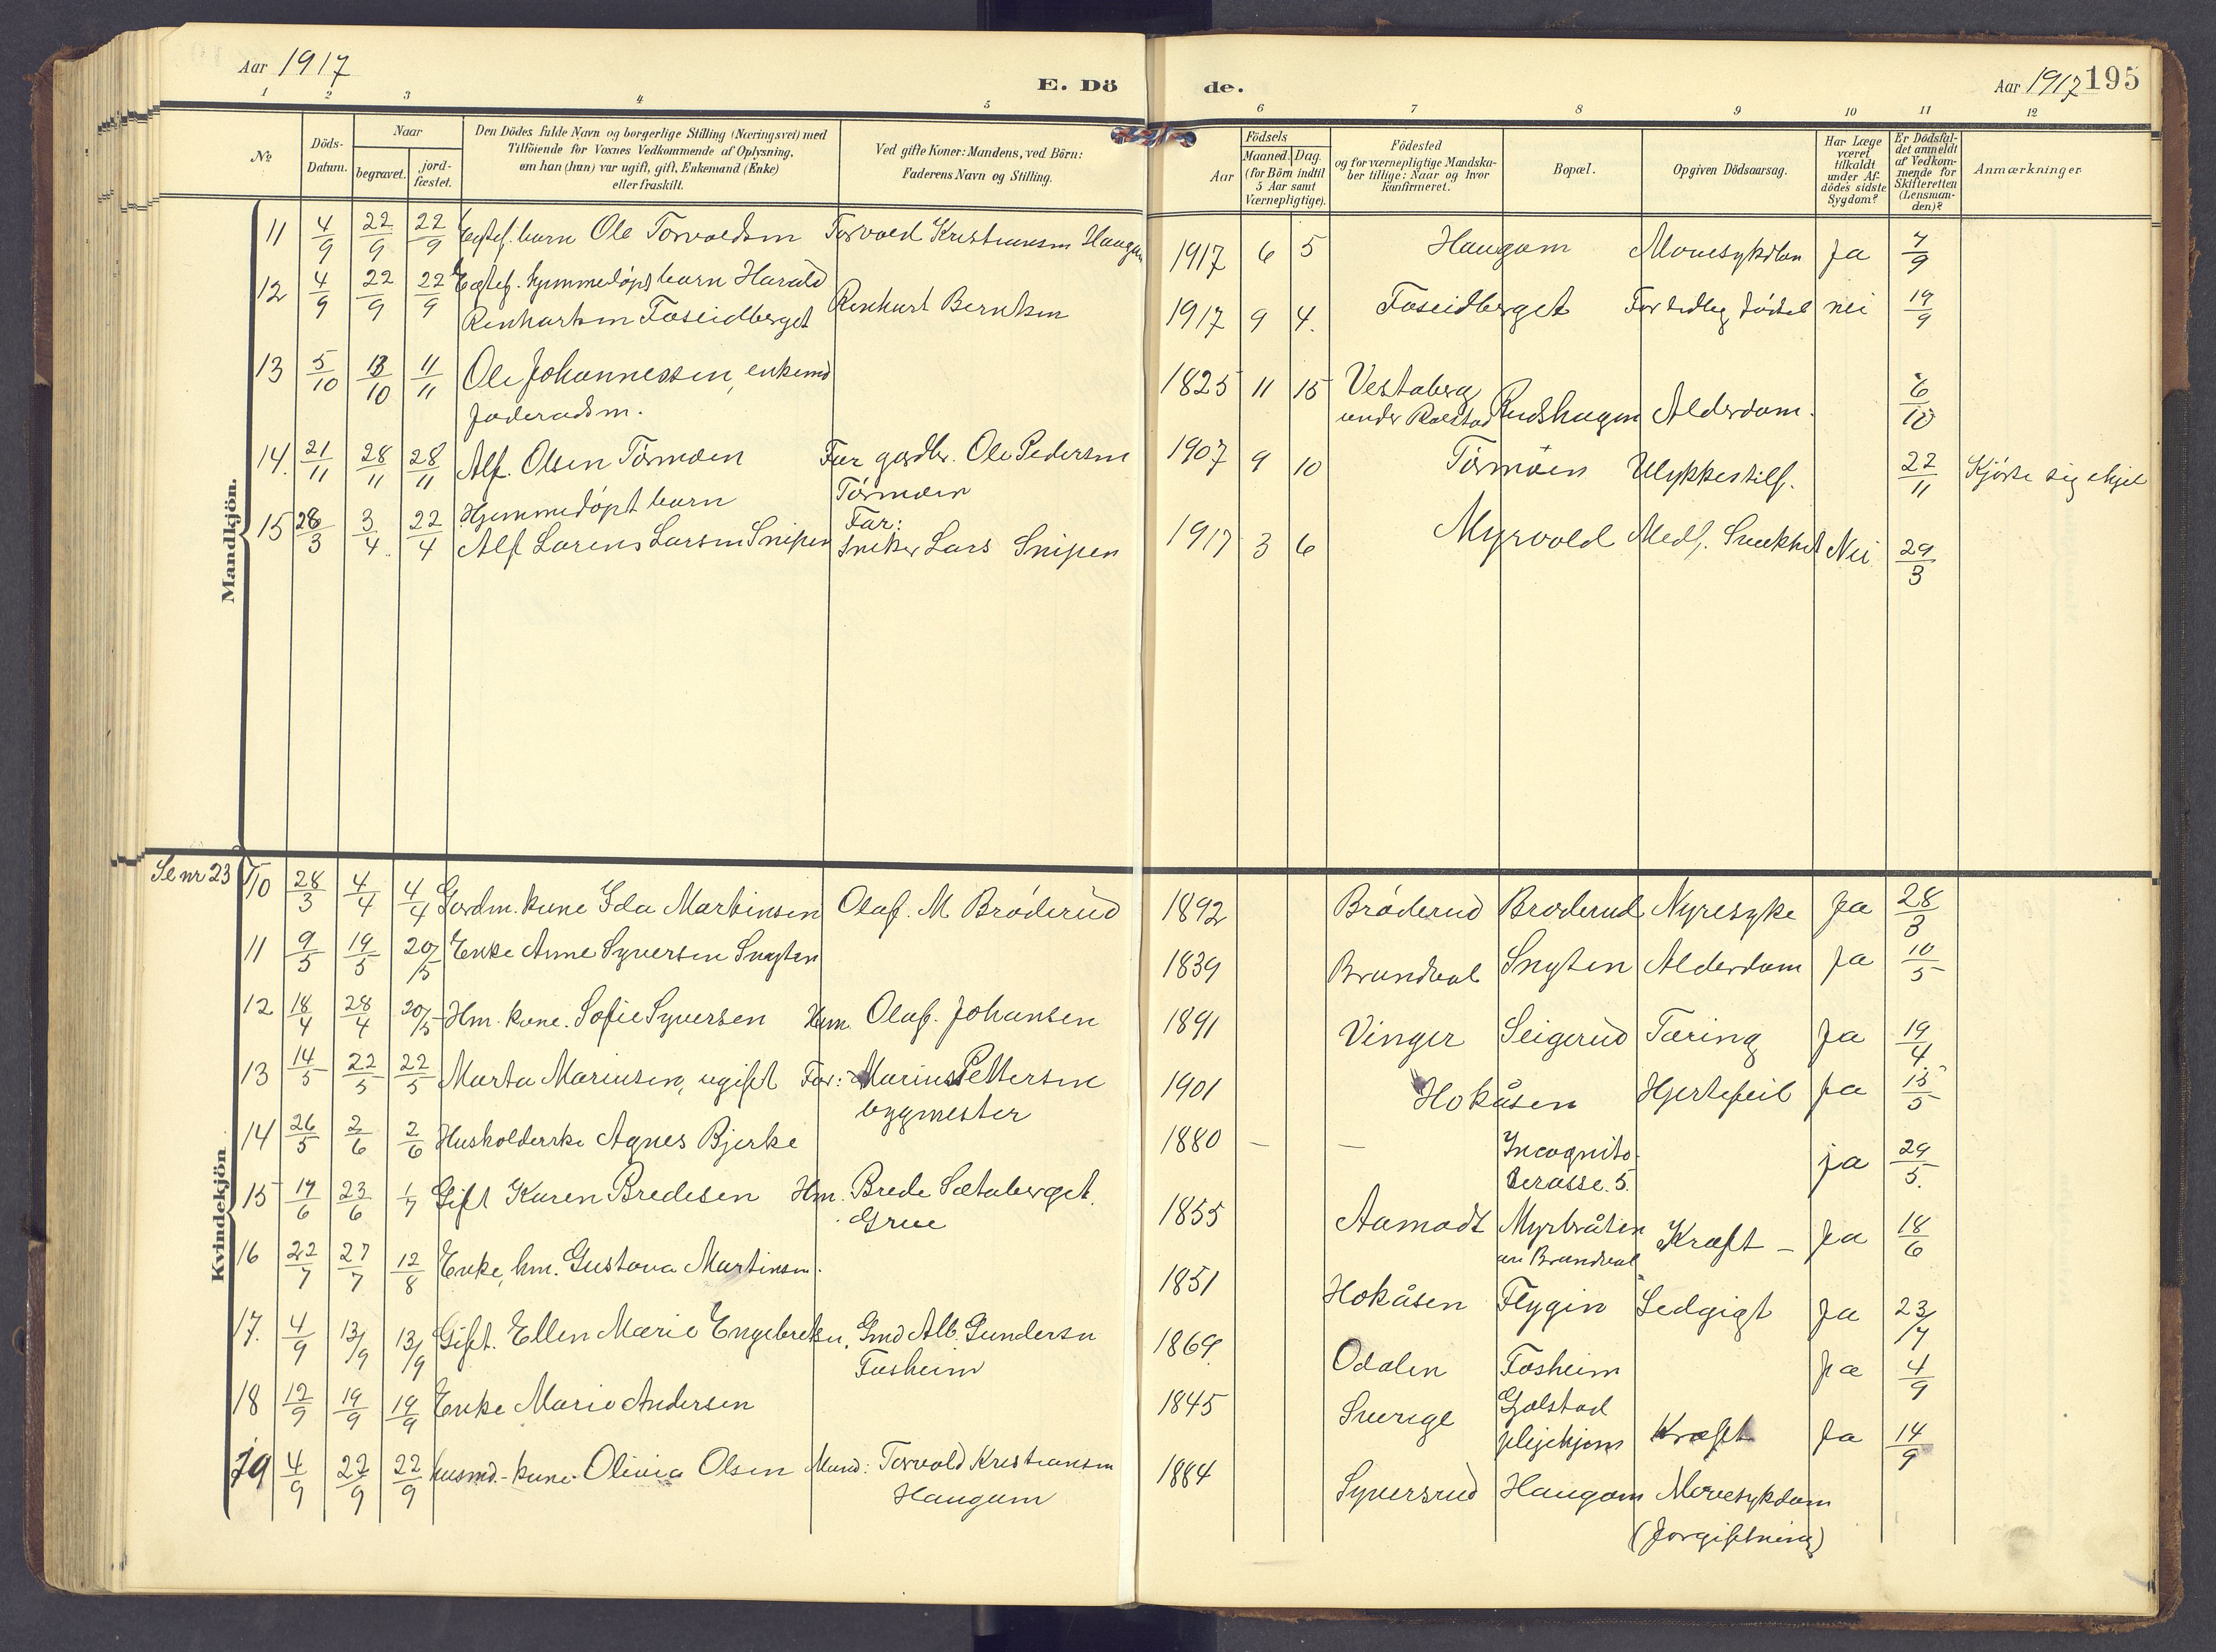 Aar 1917
E. Dö
de.
Aar 1917 195
1 2 3 4 5 6 7 8 9 10 11 12
No
Döds-
Datum.
Naar
begravet.
jord-
fæstet.
Den Dödes fulde Navn og borgerlige Stilling (Næringsvei) med
Tilföiende for Voxnes Vedkommende af Oplysning,
om han (hun) var ugift, gift, Enkemand (Enke)
eller fraskilt.
Ved gifte Koner: Mandens, ved Börn:
Faderens Navn og Stilling.
Födsels
Aar
Maaned. Dag.
(for Börn indtil
5 Aar samt
Værnepligtige).
Födested
og for værnepligtige Mandska-
ber tillige: Naar og hvor
konfirmeret.
Bopæl.
Opgiven Dödsaarsag.
Har Læge
været
tilkaldt
under Af-
dödes sidste
Sygdom?
Er Dödsfal-
det anmeldt
af Vedkom-
mende for
Skifteretten
(Lensman-
den)?
Anmærkninger
Mandkjön.
11 4/9 22/9 22/9 Egtef. barn Ole Torvaldsen Torvald Kristiansen Haugom 1917 6 5 Haugom Ja 7/9
12 4/9 22/9 22/9 Egtef. hjemmedøpt barn Harald
Renhartsen Foseidberget Renhart Berntsen 1917 9 4. Foseidberget For tidlig fødsel nei 19/9
13 5/10 13/10 11/11 Ole Johannessen, enkemd
føderaadsm. 1825 11 15 Vestaberg
under Rolstad Rudshagen Alderdom. 6/10
14. 21/11 28/11 28/11 Alf. Olsen Törmoen Far gardbr. Ole Pedersen
Törmoen 1907 9 10 Törmoen Ulykkestilf. 22/11 Kjörte sig ihjel
15 28/3 3/4 22/4 Hjemmedøpt barn
Alf Lorens Larsen Snipen Far:
Sneker Lars Snipen 1917 3 6 Myrvold Medf. Svakhet Nei 29/3
Kvindekjön
Se nr 23
10 28/3 4/4 4/4 Gardm. kone Ida Martinsen Olaf. M. Bröderud 1892 Bröderud Broderud Nyresyke Ja 28/3
11 9/5 19/5 20/5 Enke Anne Syversen Snyten 1839 Brandval Snyten Alderdom Ja 10/5
12 18/4 28/4 20/5 Hm. kone. Sofie Syversen Hm. Olaf. Johansen 1891 Vinger Seigerud Tæring Ja 19/4
13 14/5 22/5 22/5 Marta Mariusen, ugift Far: Marius Pettersen
bygmester 1901 Hokåsen Hjertefeil Ja 15/5
14 26/5 2/6 2/6 Husholderske Agnes Bjerke 1880 — — Incognito
terasse. 5. ja 29/5.
15 17/6 23/6 1/7 Gift Karen Bredesen Hm. Brede Sætaberget.
Grue 1855 Aamodt Myrbråten
av Brandval Kræft – Ja 18/6
16 22/7 27/7 12/8 Enke, hm. Gustava Martinsen. 1851 Hokåsen Flygin Ledgigt Ja 23/7
17. 4/9 13/9 13/9 Gift. Ellen Marie Engebretsen, Gmd Alb. Gundersen
Fosheim 1869. Odalen Fosheim Ja 4/9
18 12/9 19/9 19/9 Enke Marie Andersen 1845 Sverige Gjølstad
plejehjem Kræft Ja 14/9
19 4/9 22/9 22/9 husmd.-kone. Olivia Olsen Mand: Torvald Kristiansen
Haugom 1884 Syversrud Haugom Mavesykdom
(forgiftning)